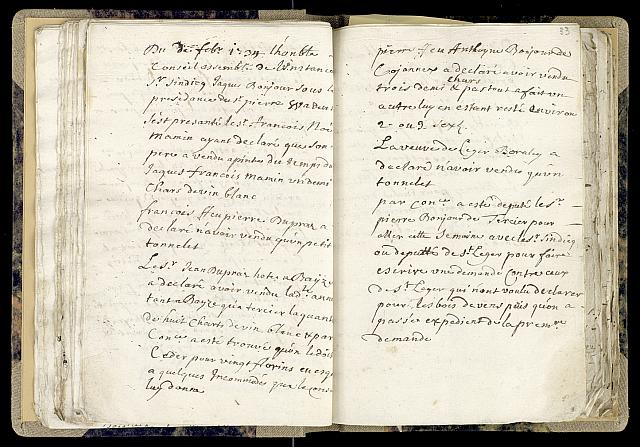 Du 2e febr 1734 lhonble
Conseil assemblé de linstance
Sr Sindicq Jaques Bonjour sous la
presidence du Sr pierre
sest presanté le Sr francois Noé
Mamin ayant declaré que son
pere a vendu a pintes du temps du
Jaques francois Mamin un demi
Chars de vin blanc
francois ffeu pierre Dupraz a
declaré n'avoir vendu qu'un petit
tonnelet
Le Sr Jean Dupraz hote a Bayze
a declaré avoir vendu lad.te anné
tant a Bayze qu'a tercier la quantité
de huit Charts de vin blanc & par
Conce a esté trouvé qu'on le doit
Ceder pour vingt florins en esgard
a quelques Incommodes que le conseil
luy donne
83
pierre ffeu Anthoyne Bonjour de
Cojonnex a declaré avoir vendu
chars
trois demi & pas tout a fait un
autre luy en estant resté environ
2 ou 3 setz
La veuve de Legier Boraley a
declaré n'avoir vendu qu'un
tonnelet
par Conce a esté deputé le Sr
pierre Bonjour de Tercier pour
aller cette Semaine avec le Sr Sindicq
ou deputté de St Leger pour faire
escrire une demande Contre ceux
de St Leger qui n'ont voulu declarer
pour les bois devens puis qu'on a
passée expedient de la premre
demande